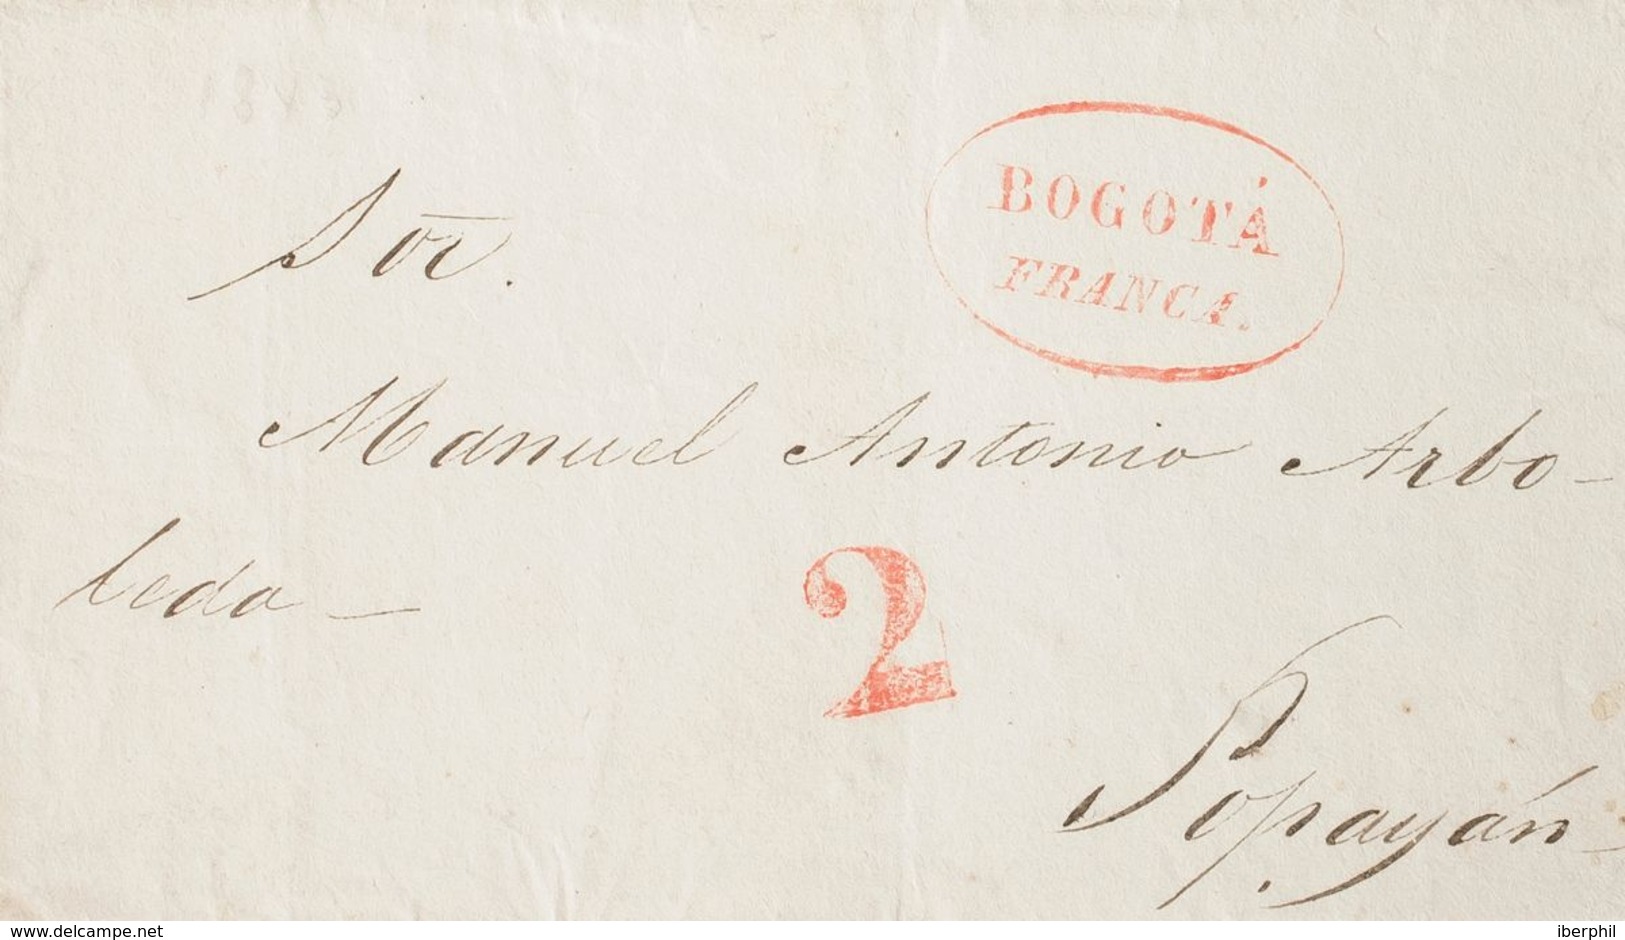 1843
BOGOTÁ
FRANCA.
Sor.
Manuel Antonio Arbo-
leda -
2
Popayán
delcampe.net
iberphil